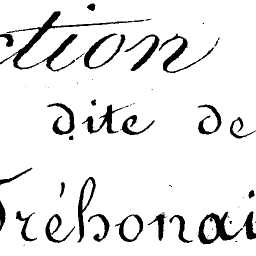 ction
dite de
Tréhonai